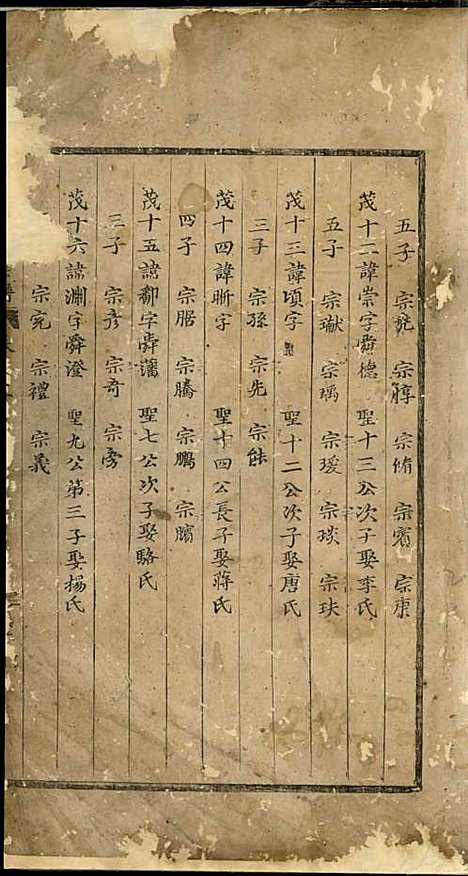 五子 宗毓 宗醇 宗脩 宗賓 宗康
茂十二諱崇字舜德 聖十三公次子娶李氏
五子 宗瓛 宗瑀 宗瑗 宗琰 宗玞
茂十三諱頃字 聖十二公次子娶唐氏
三子 宗孫 宗先 宗能
茂十四諱昕字 聖十四公長子娶蔣氏
四子 宗䐃 宗騰 宗鵬 宗臏
茂十五諱鄱字舜藩 聖七公次子娶駱氏
三子 宗彥 宗奇 宗旁
茂十六諱淵字舜澄 聖九公第三子娶楊氏
宗完 宗禮 宗義